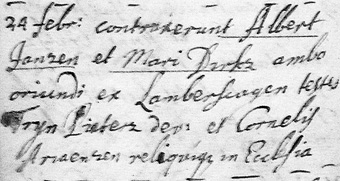 24 febr: contraxerunt Albert
Janzen et Mari Dirks ambo
oriundi ex Lamberscagen testes
Tryn Pieters der: et Cornelis
Ariaenzen reliquiq; in Ecclsia